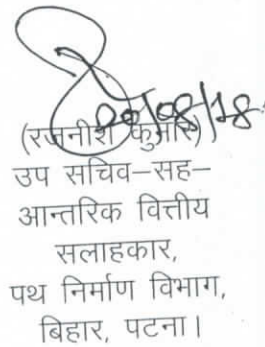 20/08/18
(रजनीश कुमार)
उप सचिव-सह-
आन्तरिक वित्तीय
सलाहकार,
पथ निर्माण विभाग,
बिहार, पटना।